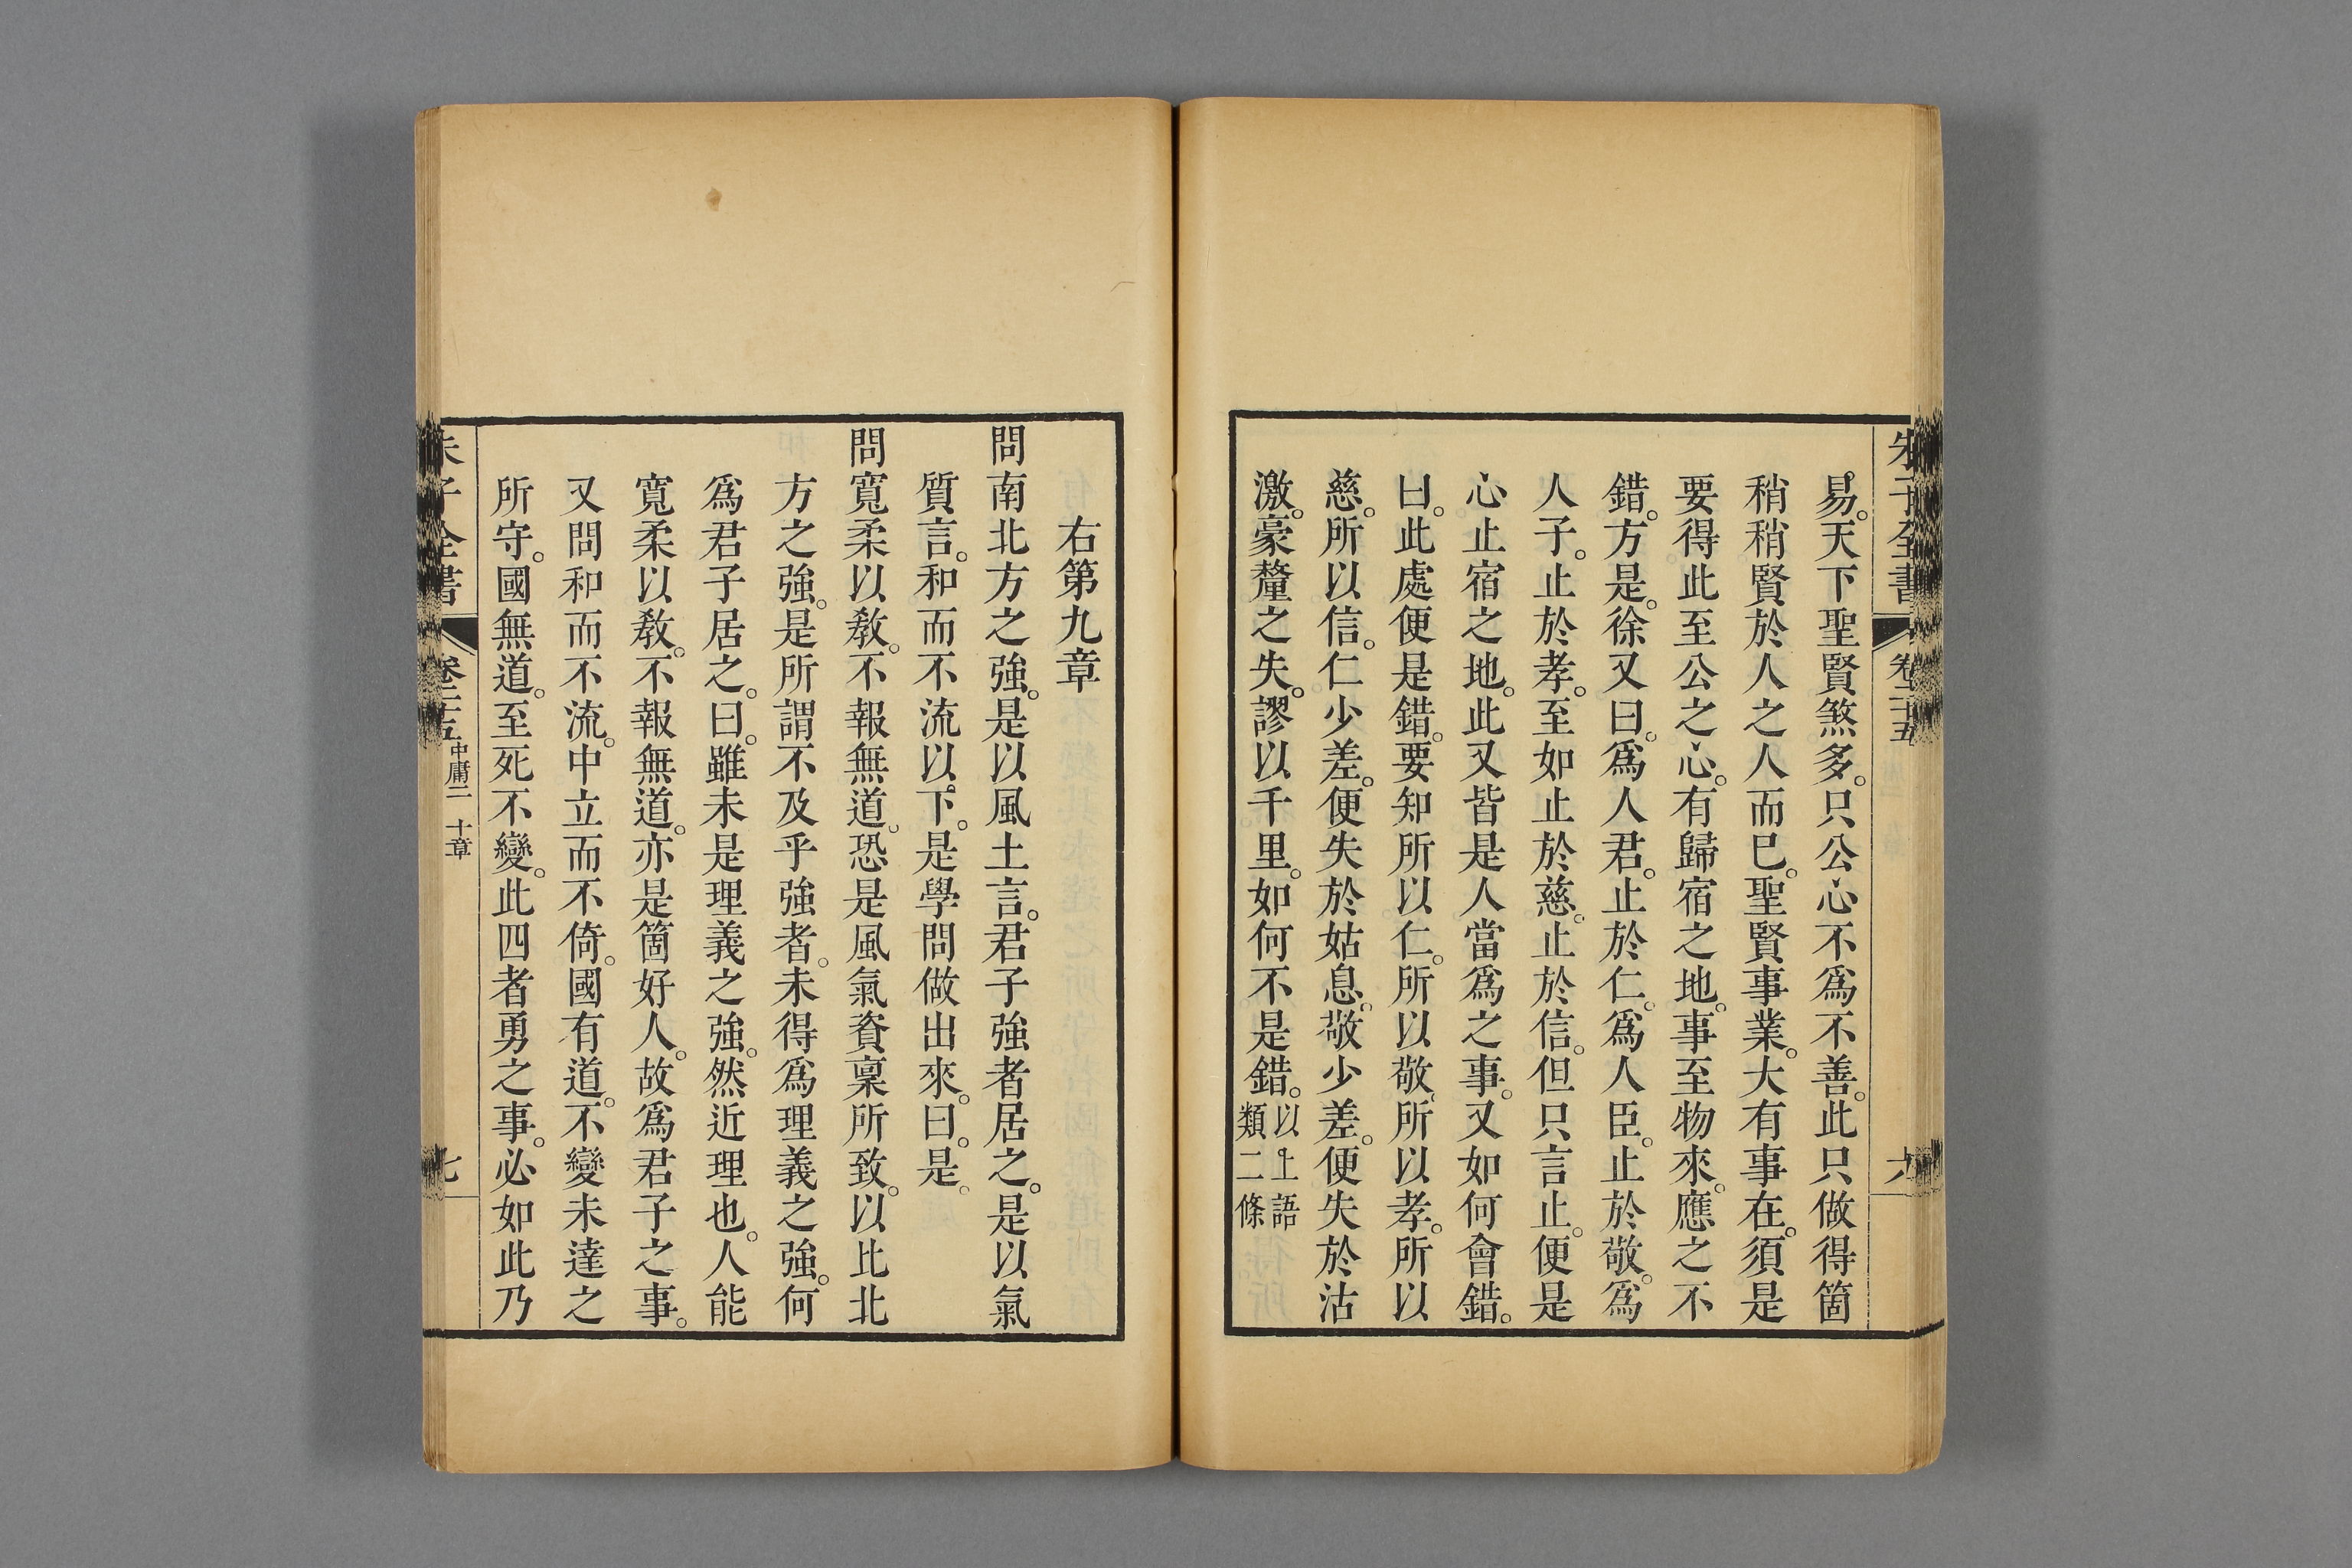 朱子全書
卷二十五
六
易。天下聖賢煞多。只公心不爲不善。此只做得箇
稍稍賢於人之人而已。聖賢事業。大有事在。須是
要得此至公之心。有歸宿之地。事至物來。應之不
錯。方是。徐又曰。爲人君。止於仁。爲人臣。止於敬。爲
人子。止於孝。至如止於慈。止於信。但只言止。便是
心止宿之地。此又皆是人當爲之事。又如何會錯。
曰。此處便是錯。要知所以仁。所以敬。所以孝。所以
慈。所以信。仁少差。便失於姑息。敬少差。便失於沽
激。豪釐之失。謬以千里。如何不是錯。以上語
類二條
右第九章
問南北方之強。是以風土言。君子強者居之。是以氣
質言。和而不流以下。是學問做出來。曰。是。
問寬柔以敎。不報無道。恐是風氣資稟所致。以比北
方之強。是所謂不及乎強者。未得爲理義之強。何
爲君子居之。曰。雖未是理義之強。然近理也。人能
寬柔以敎。不報無道。亦是箇好人。故爲君子之事。
又問和而不流。中立而不倚。國有道。不變未達之
所守。國無道。至死不變。此四者勇之事。必如此乃
朱子全書
卷二十五
中庸二 十章
七